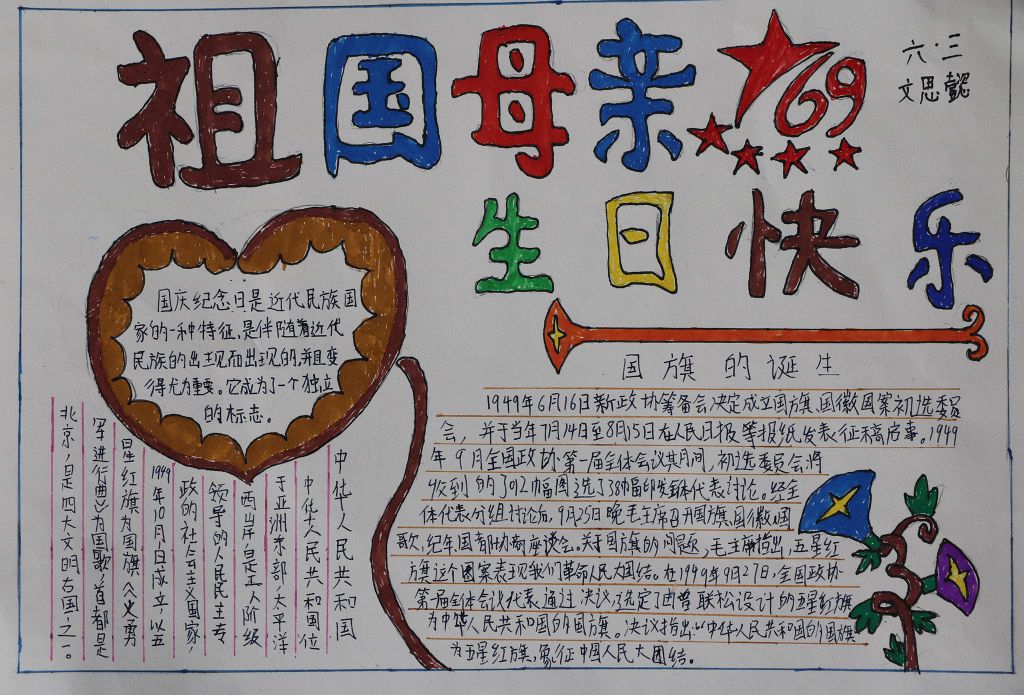 祖国母亲
69
六·三
文思懿
生日快乐
国庆纪念日是近代民族国
家的一种特征,是伴随着近代
民族的出现而出现的,并且变
得尤为重要。它成为了一个独立
的标志。
国旗的诞生
1949年6月16日新政协筹备会决定成立国旗、国徽图案初选委员
会，并于当年7月14日至8月15日在人民日报等报纸发表征稿启事。1949
年9月全国政协第一届全体会议其间，初选委员会将
收到的3012幅图选了38幅印发全体代表讨论。经全
体代表分组讨论后，9月25日晚毛主席召开国旗、国徽、国
歌、纪年、国都协商座谈会。关于国旗的问题，毛主席指出，五星红
旗这个图案表现我们革命人民大团结。在1949年9月27日，全国政协
第一届全体会议代表通过决议，选定了由曾联松设计的五星红旗
为中华人民共和国的国旗。决议指出:中华人民共和国的国旗
为五星红旗，象征中国人民大团结。
中华人民共和国
中华人民共和国位
于亚洲东部,太平洋
西岸,是工人阶级
领导的人民民主专
政的社会主义国家,
1949年10月1日成立,以五
星红旗为国旗,《义勇
军进行曲》为国歌,首都是
北京,是四大文明古国之一。